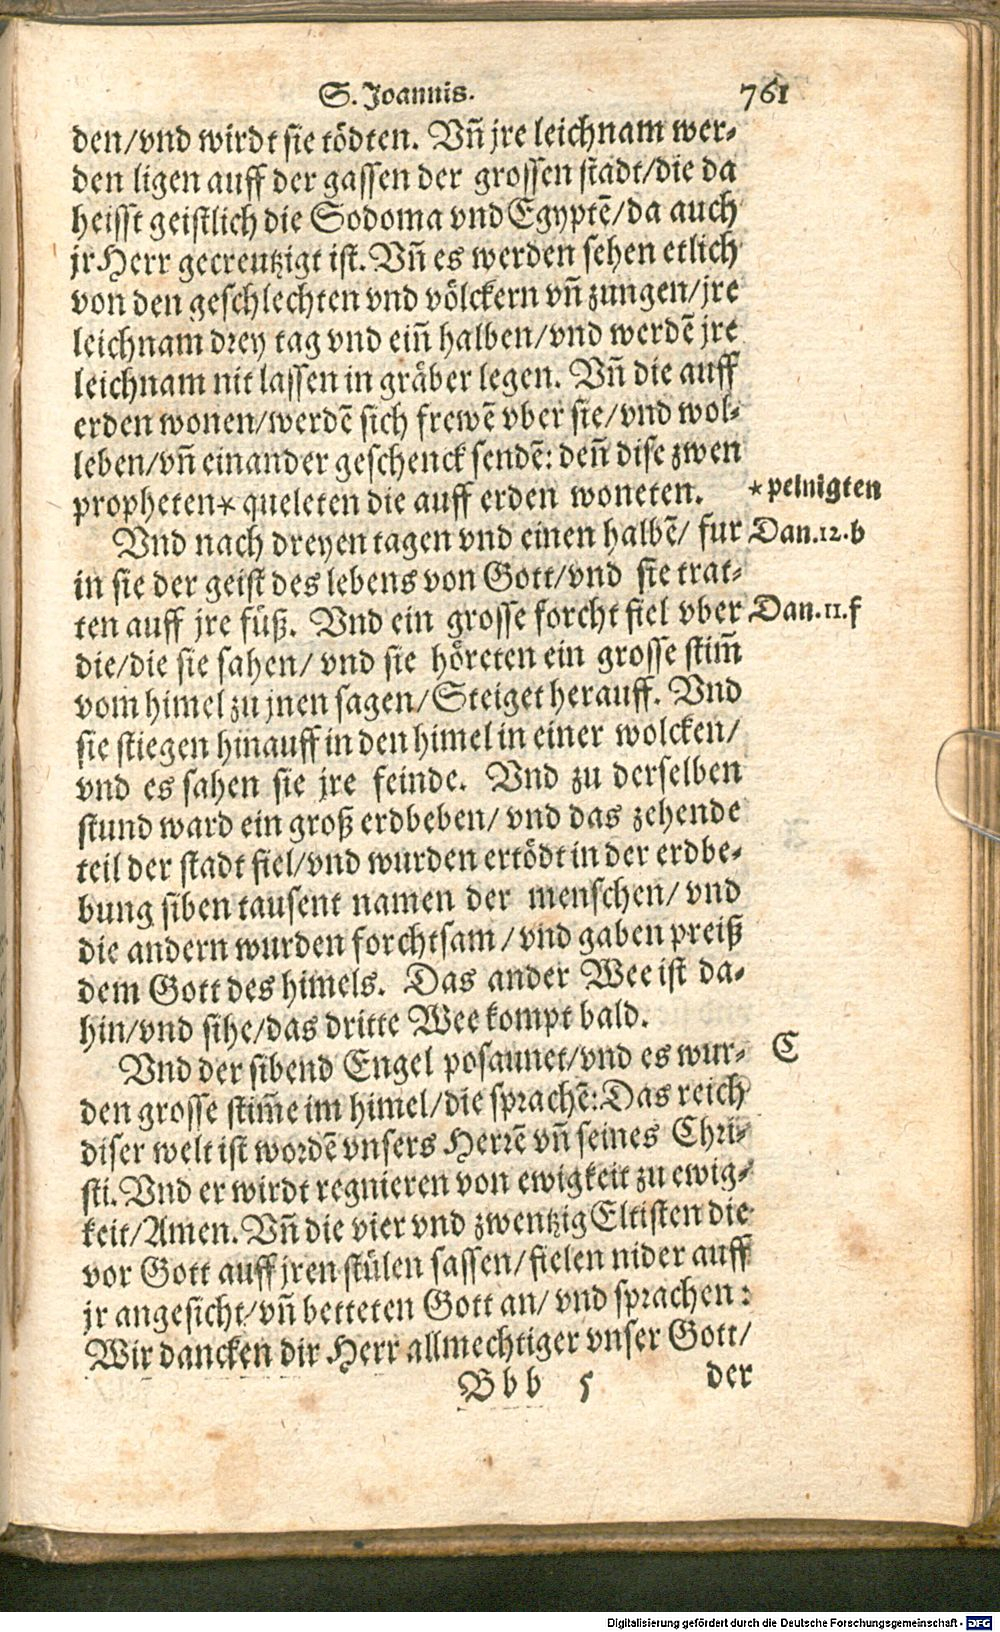 S. Joannis. 761
den/vnd wirdt sie tödten. Vñ jre leichnam wer⸗
den ligen auff der gassen der grossen stadt/die da
heisst geistlich die Sodoma vnd Egyptē/da auch
jr Herr gecreutzigt ist. Vñ es werden sehen etlich
von den geschlechten vnd völckern vñ zungen/jre
leichnam drey tag vnd eiñ halben/vnd werdē jre
leichnam nit lassen in gräber legen. Vñ die auff
erden wonen/werdē sich frewē vber sie/vnd wol⸗
leben/vñ einander geschenck sendē: deñ dise zwen
propheten* queleten die auff erden woneten. *peinigten
Vnd nach dreyen tagen vnd einen halbē/ fur Dan.12.b
in sie der geist des lebens von Gott/vnd sie trat⸗
ten auff jre füß. Vnd ein grosse forcht fiel vber Dan.11.f
die/die sie sahen/ vnd sie höreten ein grosse stim̃
vom himel zu jnen sagen/Steiget herauff. Vnd
sie stiegen hinauff in den himel in einer wolcken/
vnd es sahen sie jre feinde. Vnd zu derselben
stund ward ein groß erdbeben/ vnd das zehende
teil der stadt fiel/vnd wurden ertödt in der erdbe⸗
bung siben tausent namen der menschen/ vnd
die andern wurden forchtsam/vnd gaben preiß
dem Gott des himels. Das ander Wee ist da⸗
hin/vnd sihe/das dritte Wee kompt bald.
Vnd der sibend Engel posaunet/vnd es wur⸗ C
den grosse stim̃e im himel/die sprachē: Das reich
diser welt ist wordē vnsers Herrē vñ seines Chri⸗
sti. Vnd er wirdt regnieren von ewigkeit zu ewig⸗
keit/Amen. Vñ die vier vnd zwentzig Eltisten die
vor Gott auff jren stülen sassen/fielen nider auff
jr angesicht/vñ betteten Gott an/ vnd sprachen:
Wir dancken dir Herr allmechtiger vnser Gott/
Bbb 5 der
Digitalisierung gefördert durch die Deutsche Forschungsgemeinschaft - DFG